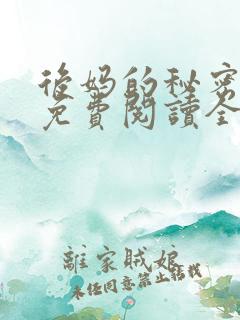 後妈的秘密
免費閱讀全
離家賊娘
未经同意禁止转载